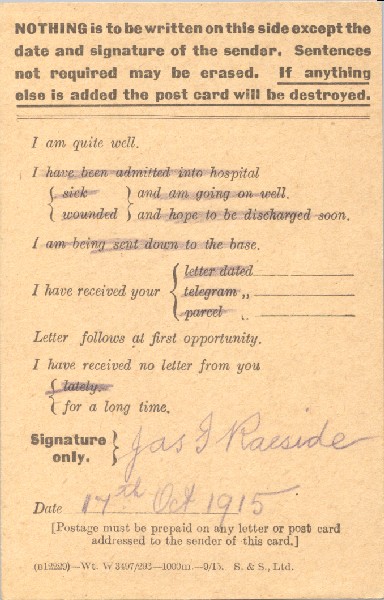 NOTHING is to be written on this side except the
date and signature of the sender. Sentences
not required may be erased. If anything
else is added the post card will be destroyed.
I am quite well.
I have been admitted into hospital
{ sick } and am going on well.
{ wounded } and hope to be discharged soon.
I am being sent down to the base.
{ letter dated
I have received your { telegram „
{ parcel „
Letter follows at first opportunity.
I have received no letter from you
{ lately.
{ for a long time.
Signature only. } Jas G Raeside
Date 17th Oct 1915
[Postage must be prepaid on any letter or post card
addressed to the sender of this card.]
—Wt. W 3497/293—1000m.—9/15. S. & S., Ltd.